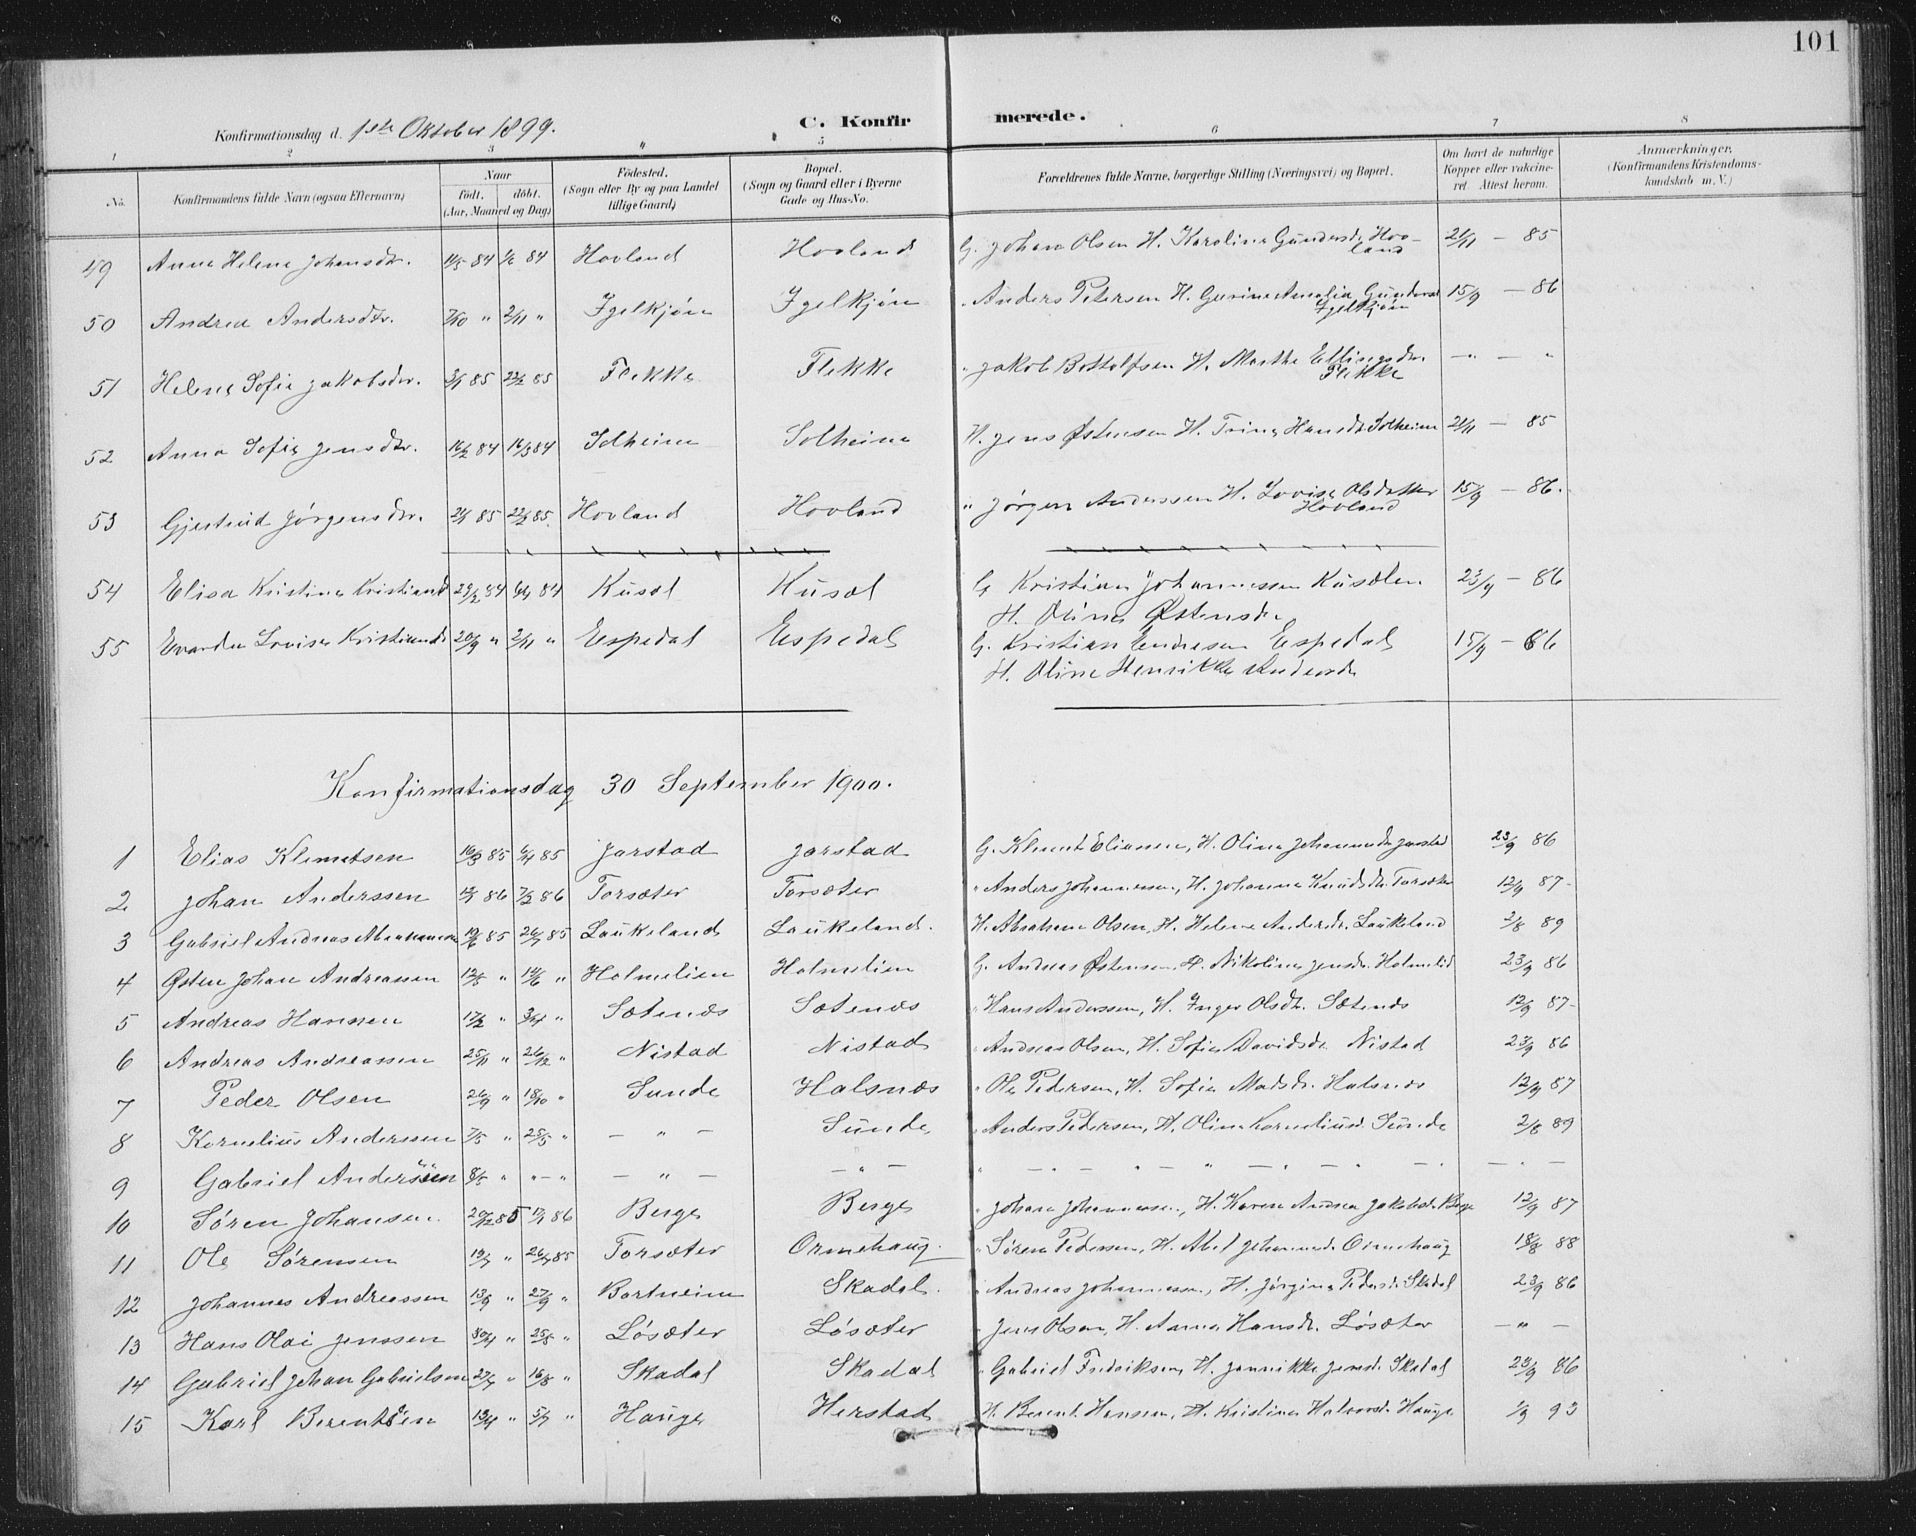 101
Konfirmationsdag d. 1ste Oktober 1899. C. Konfirmerede.
1 2 3 " 5 6 7 8
No. Konfirmandens fulde Navn (ogsaa Efternavn) Naar født. døbt. (Aar, Maaned og Dag) Fødested. (Sogn eller By og paa Landet tillige Gaard) Bopæl. (Sogn og Gaard eller i Byerne Gade og Hus-No. Forældrenes fulde Navne, borgerlige Stilling (Næringsvei) og Bopæl. Om havt de naturlige Kopper eller vakcineret. Attest herom. Anmærkninger. (Konfirmandens Kristendomskundskab m. V.)
49 Anna Helene Johansdtr. 84 84 Hovland Hovland G. Johan Olsen H. Karoline Gundersd. Hovland 21/11 — 85
50 Andrea Andersdtr. 7/10 " 2/11 " Igelkjøn Igelkjøn " Anders Petersen H. Gurine Amalia Gundersd Igelkjøn 15/9 — 86
51 Helene Sofie Jakobsdtr. 85 22/2 85 Flekke Flekke " Jakob Bottolfsen H. Marthe Ellingsdtr. Flekke —"— "
52 Anna Sofie Jensdtr. 16/2 84 16/3 84 Solheim Solheim H. Jens Østensen H. Trine Hansdt. Solheim 21/11 — 85
53 Gjertrud Jørgensdtr. 85 22/2 85. Hovland Hovland " Jørgen Anderssen H. Lovise Olsdatter Hovland 15/9 — 86.
54 Elisa Kristine Kristiansd 29/2 84 84 Kusæl Husæl G Kristian Johannessen Kusælen 23/9 — 86
H. Oline Østensdr
55 Evarda Lovise Kristiansd 20/9 " 2/11 " Espedal Espedal G. Kristian Endresen Espedal 15/9 — 86
H. Oline Henrikke Andersdr
Konfirmationsdag 30 September 1900.
1 Elias Klemetsen 16/3 85 6/4 85 Jarstad Jarstad G. Klemet Eliassen, H. Oline Johannesdr Jarstad 23/9 86
2 Johan Anderssen 86 7/2 86 Torsæter Torsæter " Anders Johannessen, H. Johanna Knudsdr. Torsæter 12/9 87-
3 Gabriel Andreas Abrahamsen 19/6 85 26/7 85 Laukeland Laukeland. H. Abraham Olsen, H. Helene Andersdr. Laukeland 2/8 89
4 Østen Johan Andreassen 12/5 " 14/6 " Holmelien Holmelien G. Andreas Østensen, H. Nikoline Jensdr. Holmelid 23/9 86
5 Andreas Hansen 17/2 " 3/4 " Sætenæs Sætenæs " Hans Anderssen, H. Inger Olsdr. Sætenæs 12/9 87-
6 Andreas Andreassen 25/11 " 26/12 " Nistad Nistad " Andreas Olsen, H. Sofie Davidsdr Nistad 23/9 86
7 Peder Olsen 26/9 " 18/10 " Sunde Halsnæs " Ole Pedersen, H. Sofie Madsdr. Halsnæs 12/9 87
8 Kornelius Anderssen 7/5 " 25/5 " — " — Sunde, " Anders Pedersen, H. Oline Korneliusd. Sunde 2/8 89
9 Gabriel Anderssen 8/5 " " — " — " — — " — " — " — " — " — " — — " —
10 Søren Johansen. 20/12 85 17/1 86 Berge Berge " Johan Johannessen, H. Karen Andrea Jakobsd. Berge 12/9 87
11 Ole Sørensen 19/7 " 26/7 85 Torsæter Ormehaug. " Søren Pedersen, H. Abel Johannesdr Ormehaug 18/8 88
12 Johannes Andreassen 13/9 " 27/9 " Bortneim Skadal. " Andreas Johannessen, H. Jørgine Pedersdr. Skadal 23/9 86
13 Hans Olai Jenssen 30/4 " 25/8 " Løsæter Løsæter " Jens Olsen, H. Anna Hansdr. Løsæter — " —
14 Gabriel Johan Gabrielsen 27/7 " 16/8 " Skadal Skadal " Gabriel Fredriksen, H. Jannikke Jensdr. Skadal 23/9 86
15 Karl Berentsen 13/4 " 5/7 " Hauge Herstad H. Berent Hansen, H. Kristine Halvorsdr. Hauge 1/9 93